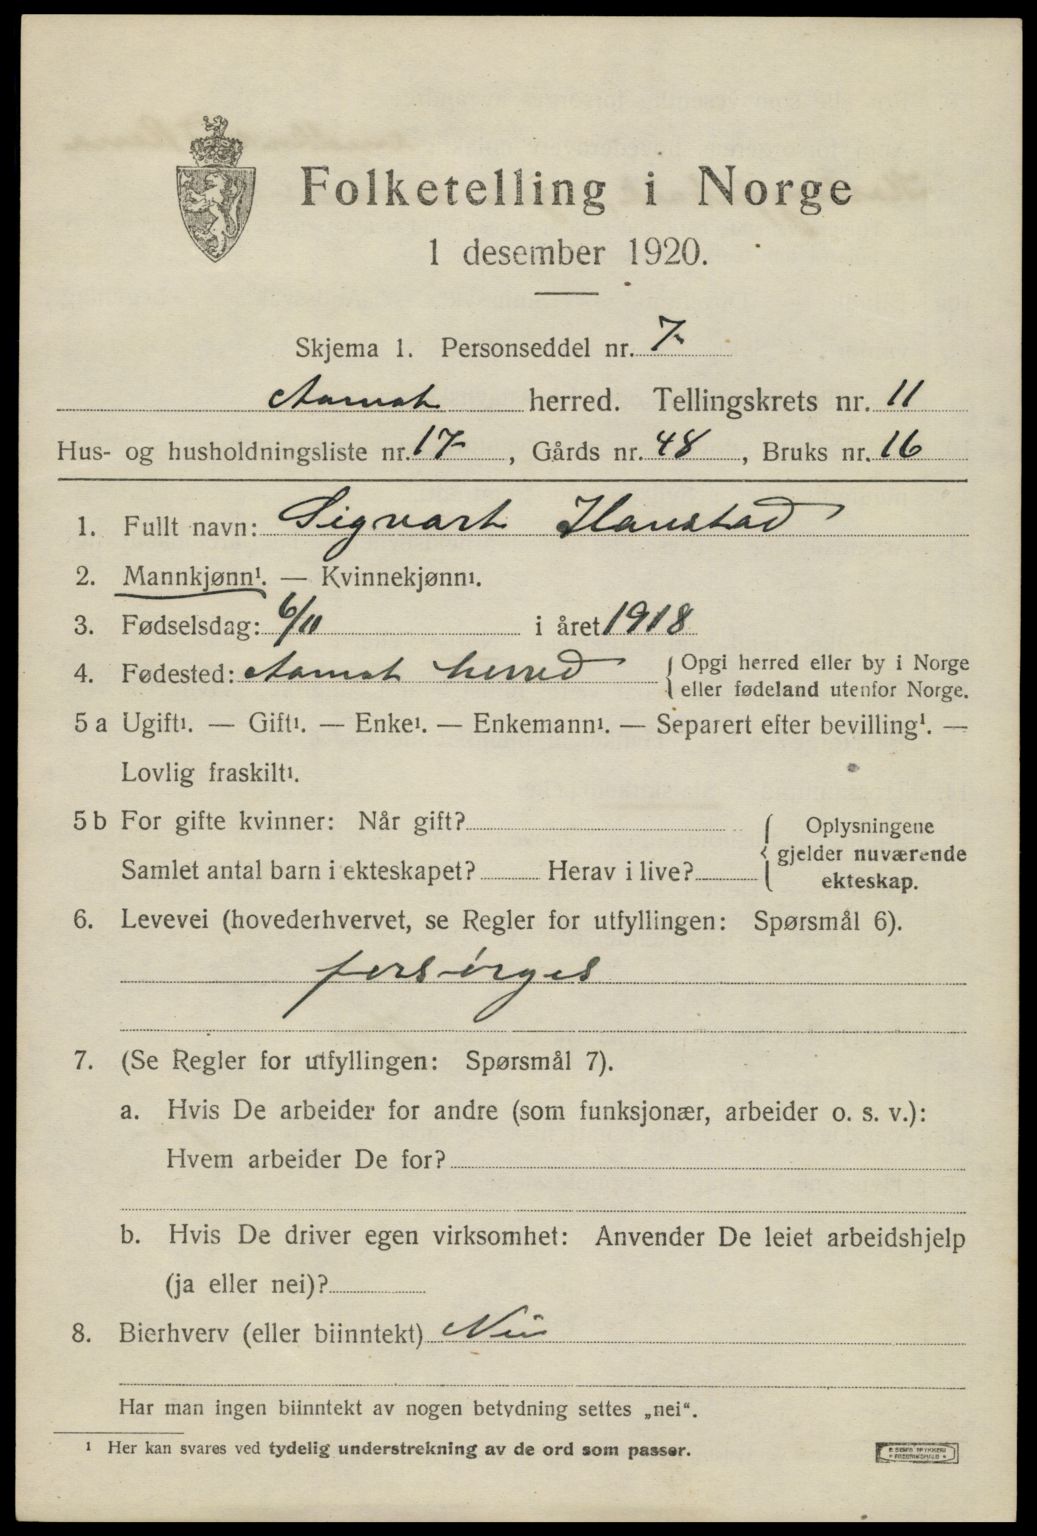 Folketelling i Norge
1 desember 1920.
Skjema 1. Personseddel nr. 7
Aamot herred. Tellingskrets nr. 11
Hus- og husholdningsliste nr. 17, Gårds nr. 48, Bruks nr. 16
1. Fullt navn: Sigvart Hanstad
2. Mannkjønn¹. — Kvinnekjønn¹.
3. Fødselsdag: 6/11 i året 1918
4. Fødested: Aamot herred { Opgi herred eller by i Norge
eller fødeland utenfor Norge.
5 a Ugift¹. — Gift¹. — Enke¹. — Enkemann¹. — Separert efter bevilling¹. —
Lovlig fraskilt¹.
5 b For gifte kvinner: Når gift?
Samlet antal barn i ekteskapet? Herav i live?
{ Oplysningene
gjelder nuværende
ekteskap.
6. Levevei (hovederhvervet, se Regler for utfyllingen: Spørsmål 6).
forsørges
7. (Se Regler for utfyllingen: Spørsmål 7).
a. Hvis De arbeider for andre (som funksjonær, arbeider o. s. v.):
Hvem arbeider De for?
b. Hvis De driver egen virksomhet: Anvender De leiet arbeidshjelp
(ja eller nei)?
8. Bierhverv (eller biinntekt) Nei
Har man ingen biinntekt av nogen betydning settes „nei“.
¹ Her kan svares ved tydelig understrekning av de ord som passer.